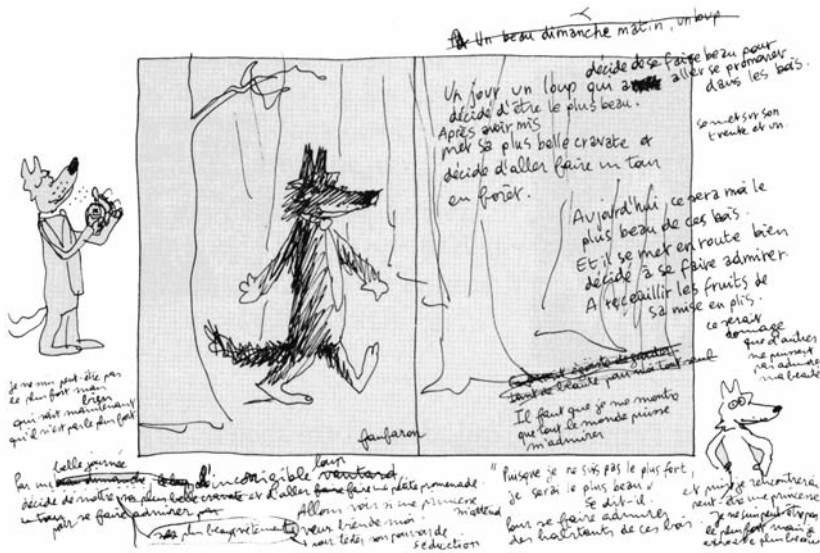 Un beau dimanche matin, un loup
décide de se faire beau pour
aller se promener
dans les bois.
Un jour un loup qui a
décide d'être le plus beau.
Après avoir mis
met sa plus belle cravate et
décide d'aller faire un tour
en forêt.
se met sur son
trente et un.
Aujourd'hui ce sera moi le
plus beau de ces bois.
Et il se met en route bien
décidé à se faire admirer
A receuillir les fruits de
sa mise en plis.
ce serait
dommage
que d'autres
ne puissent
pas admirer
ma beauté
égoïste de garder
tant de beauté pour moi tout seul
Il faut que je me montre
que tout le monde puisse
m'admirer
fanfaron
je ne suis peut-être pas
le plus fort mais
bien
qui sait maintenant
qu'il n'est pas le plus fort
belle journée
Par un beau dimanche, le loup d'incorrigible vantard
loup
décide de mettre sa plus belle cravate et d'aller faire faire une petite promenade.
un tour
pour se faire admirer par
ses plus beaux vêtements
Allons voir si une princesse
m'attend
veux bien de moi
tester son pouvoir de
séduction
"Puisque je ne suis pas le plus fort,
je serai le plus beau"
se dit-il.
Pour se faire admirer
des habitants de ces bois.
et puis je rencontrerai
peut-être une princesse
Je ne suis peut-être pas
le plus fort mais je
le plus beau